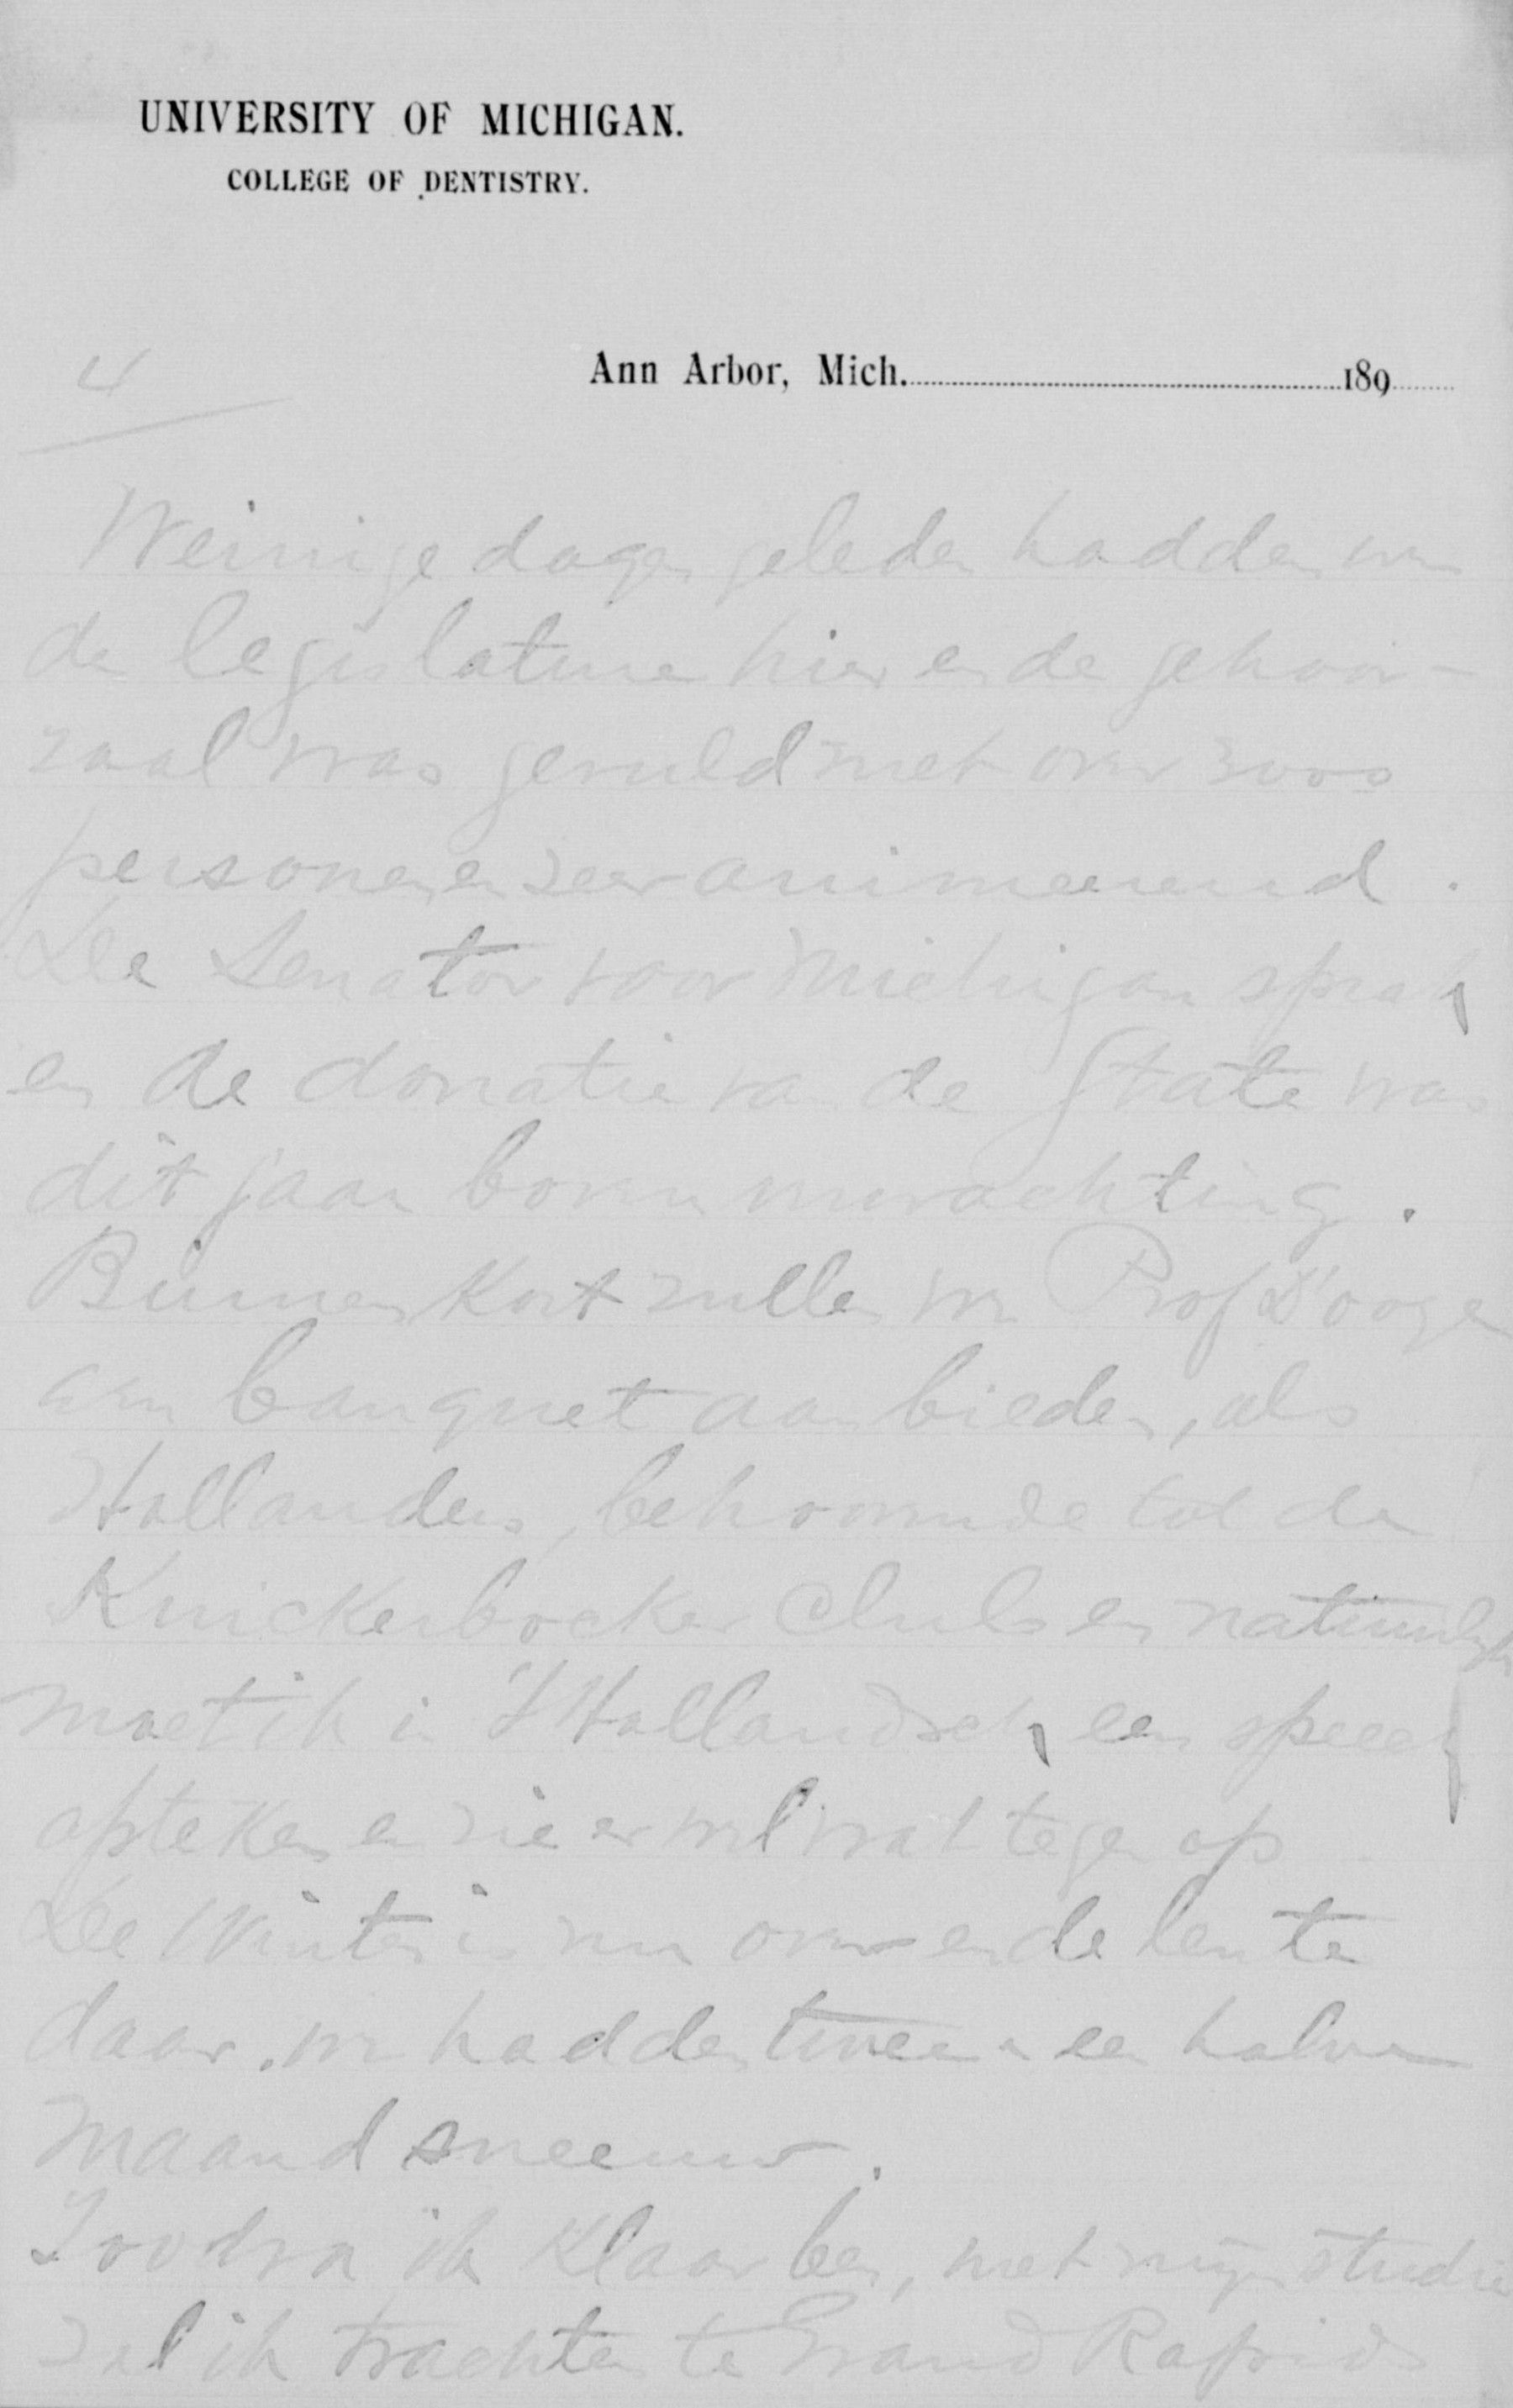 UNIVERSITY OF MICHIGAN.
COLLEGE OF DENTISTRY.
Ann Arbor, Mich. 189
4
Weinige dagen geleden hadden we
de legislature hier en de gehoor-
zaal was gevuld met over 3000
personen en zeer animeerend.
De Senator voor Michigan sprak
en de donatie van de State was
dit jaar boven verwachting.
Binnen kort zullen we Prof D'ooge
een banquet aanbieden, als
Hollanders, behoorende tot de
Knickerbocker Club en natuurlijk
moet ik in 't Hollandsch een speech
afsteken en zie er wel wat tegen op
De Winter is nu over en de lente
daar. we hadden twee en een halve
maand sneeuw.
Zoodra ik klaar ben, met mijn studie
zal ik trachten te Grand Rapids